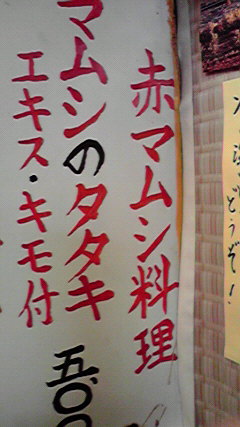 赤マムシ料理
マムシのタタキ
エキス・キモ付
五、〇
どうぞ！